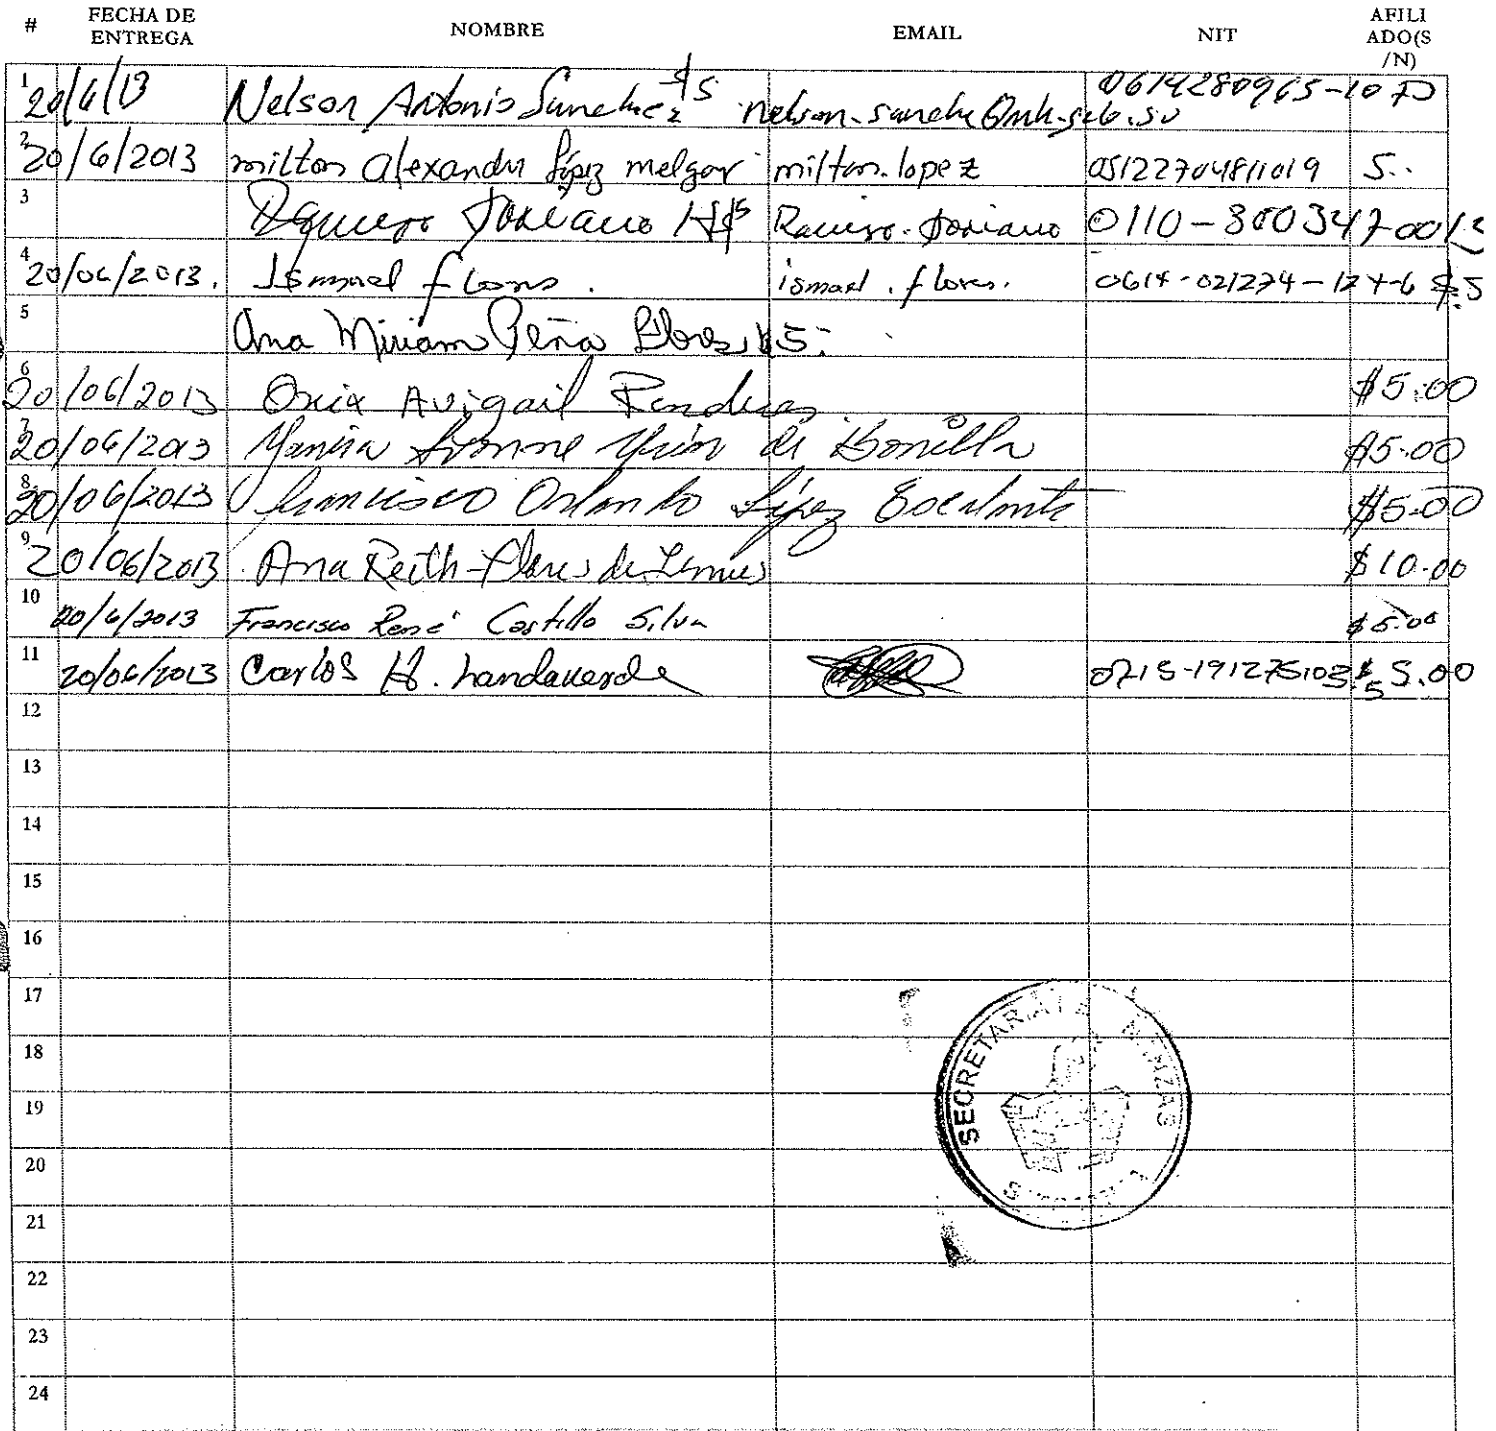 # FECHA DE ENTREGA NOMBRE EMAIL NIT AFILI ADO(S /N)
1 20/6/13 Nelson Antonio Sanchez $5 nelson.sanche
2 20/6/2013 milton Alexander López melgar milton.lopez 05122704811019 5..
3 Soriano $5 Soriano 0110-
4 20/06/2013. Ismael flores. ismael.flores. 0614-021274- $5
5 Ana Miriam Peña Flores $5.
6 20/06/2013 Avigail $5.00
7 20/06/2013 Yanira Ivonne de Bonilla $5.00
8 20/06/2013 Francisco Orlando López Escalante $5.00
9 20/06/2013 Ana Ruth Flores de Lemus $10.00
10 20/6/2013 Francisco René Castillo Silva $5.00
11 20/06/2013 Carlos H. Landaverde $5.00
12
13
14
15
16
17
18
19
20
21
22
23
24
SECRETARIA DE FINANZAS